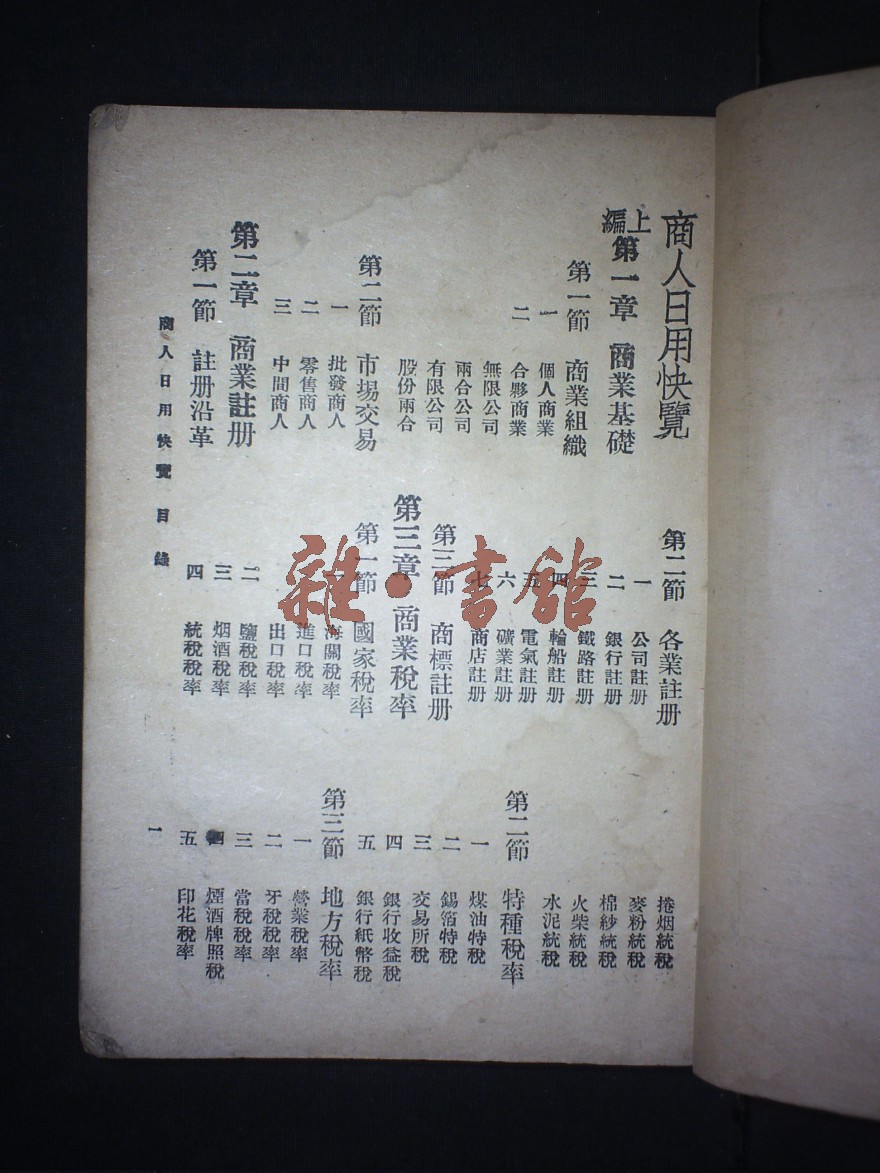 商人日用快覽
上編
第一章 商業基礎
第一節 商業組織
一 個人商業
二 合夥商業
無限公司
兩合公司
有限公司
股份兩合
第二節 市場交易
一 批發商人
二 零售商人
三 中間商人
第二章 商業註册
第一節 註册沿革
第二節 各業註册
一 公司註册
二 銀行註册
三 鐵路註册
四 輪船註册
五 電氣註册
六 礦業註册
七 商店註册
第三節 商標註册
第三章 商業稅率
第一節 國家稅率
一 海關稅率
進口稅率
出口稅率
二 鹽稅稅率
三 烟酒稅率
四 統稅稅率
捲烟統稅
麥粉統稅
棉紗統稅
火柴統稅
水泥統稅
第二節 特種稅率
一 煤油特稅
二 錫箔特稅
三 交易所稅
四 銀行收益稅
五 銀行紙幣稅
第三節 地方稅率
一 營業稅率
二 牙稅稅率
三 當稅稅率
四 煙酒牌照稅
五 印花稅率
商人日用快覽目錄
一
雜·書館